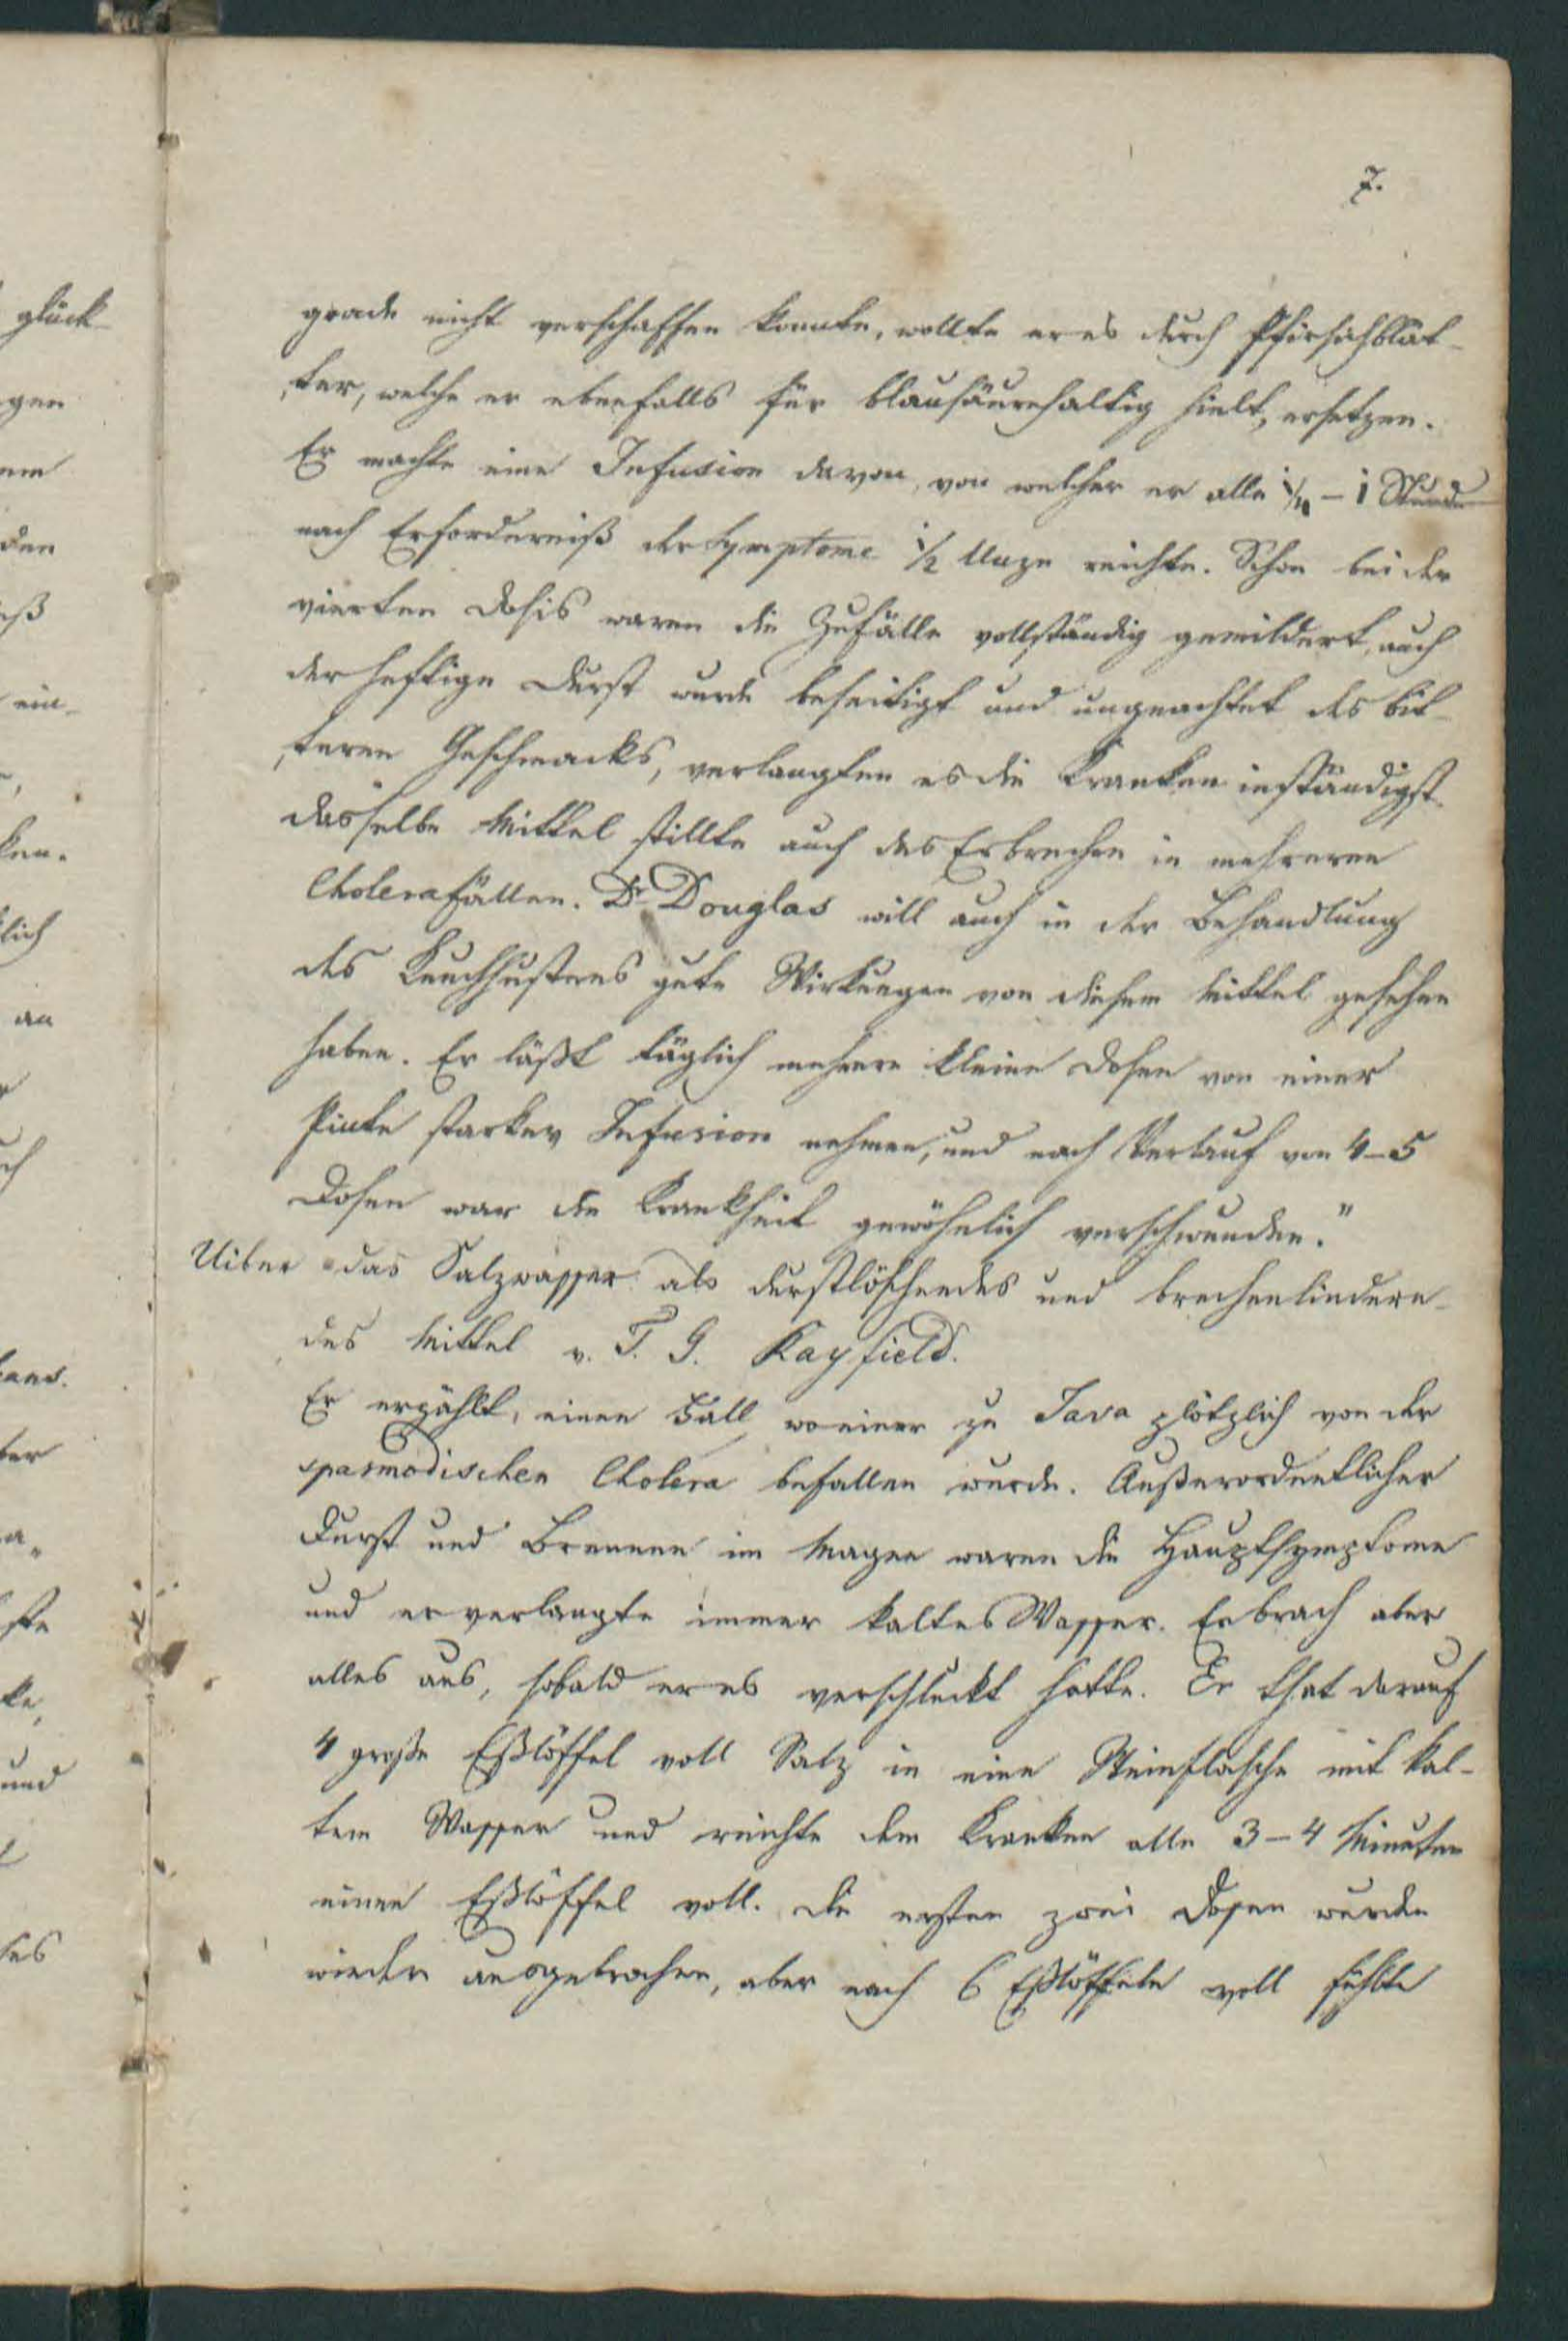 7.
grade nicht verschaffen konnte, wollte er es durch Pfirsichblät-
ter, welche er ebenfalls für blausäurehaltig hielt, ersetzen.
Er machte eine Infusion davon, von welcher er alle 1/4 – 1 Stunde
nach Erforderniß der Symptome 1/2 Unze reichte. Schon bei der
vierten Dosis waren die Zufälle vollständig gemildert, auch
der heftige Durst wurde beseitigt und ungeachtet des bit-
teren Geschmacks, verlangten es die Kranken inständigst.
Dasselbe Mittel stillte auch das Erbrechen in mehreren
Cholerafällen. Dr Douglas will auch in der Behandlung
des Keuchhustens gute Wirkungen von diesem Mittel gesehen
haben. Er läßt täglich mehrere kleine Dosen von einer
Pinte starker Infusion nehmen, und nach Verlauf von 4–5
Dosen war die Krankheit gewöhnlich verschwunden."
Uiber das Salzwasser als durstlöschendes und brechenlindern-
des Mittel v. T. G. Kayfield.
Er erzählt, einen Fall, wo einer zu Java plötzlich von der
spasmodischen Cholera befallen wurde. Außerordentlicher
Durst und Brennen im Magen waren die Hauptsymptome
und er verlangte immer kaltes Wasser. Er brach aber
alles aus, sobald er es verschluckt hatte. Er that darauf
4 große Eßlöffel voll Salz in eine Steinflasche mit kal-
tem Wasser und reichte dem Kranken alle 3–4 Minuten
einen Eßlöffel voll. Die ersten zwei Dosen wurden
wieder ausgebrochen, aber nach 6 Eßlöffeln voll fühlte
glück-
gen
den
ein-
lich
an
ter
und